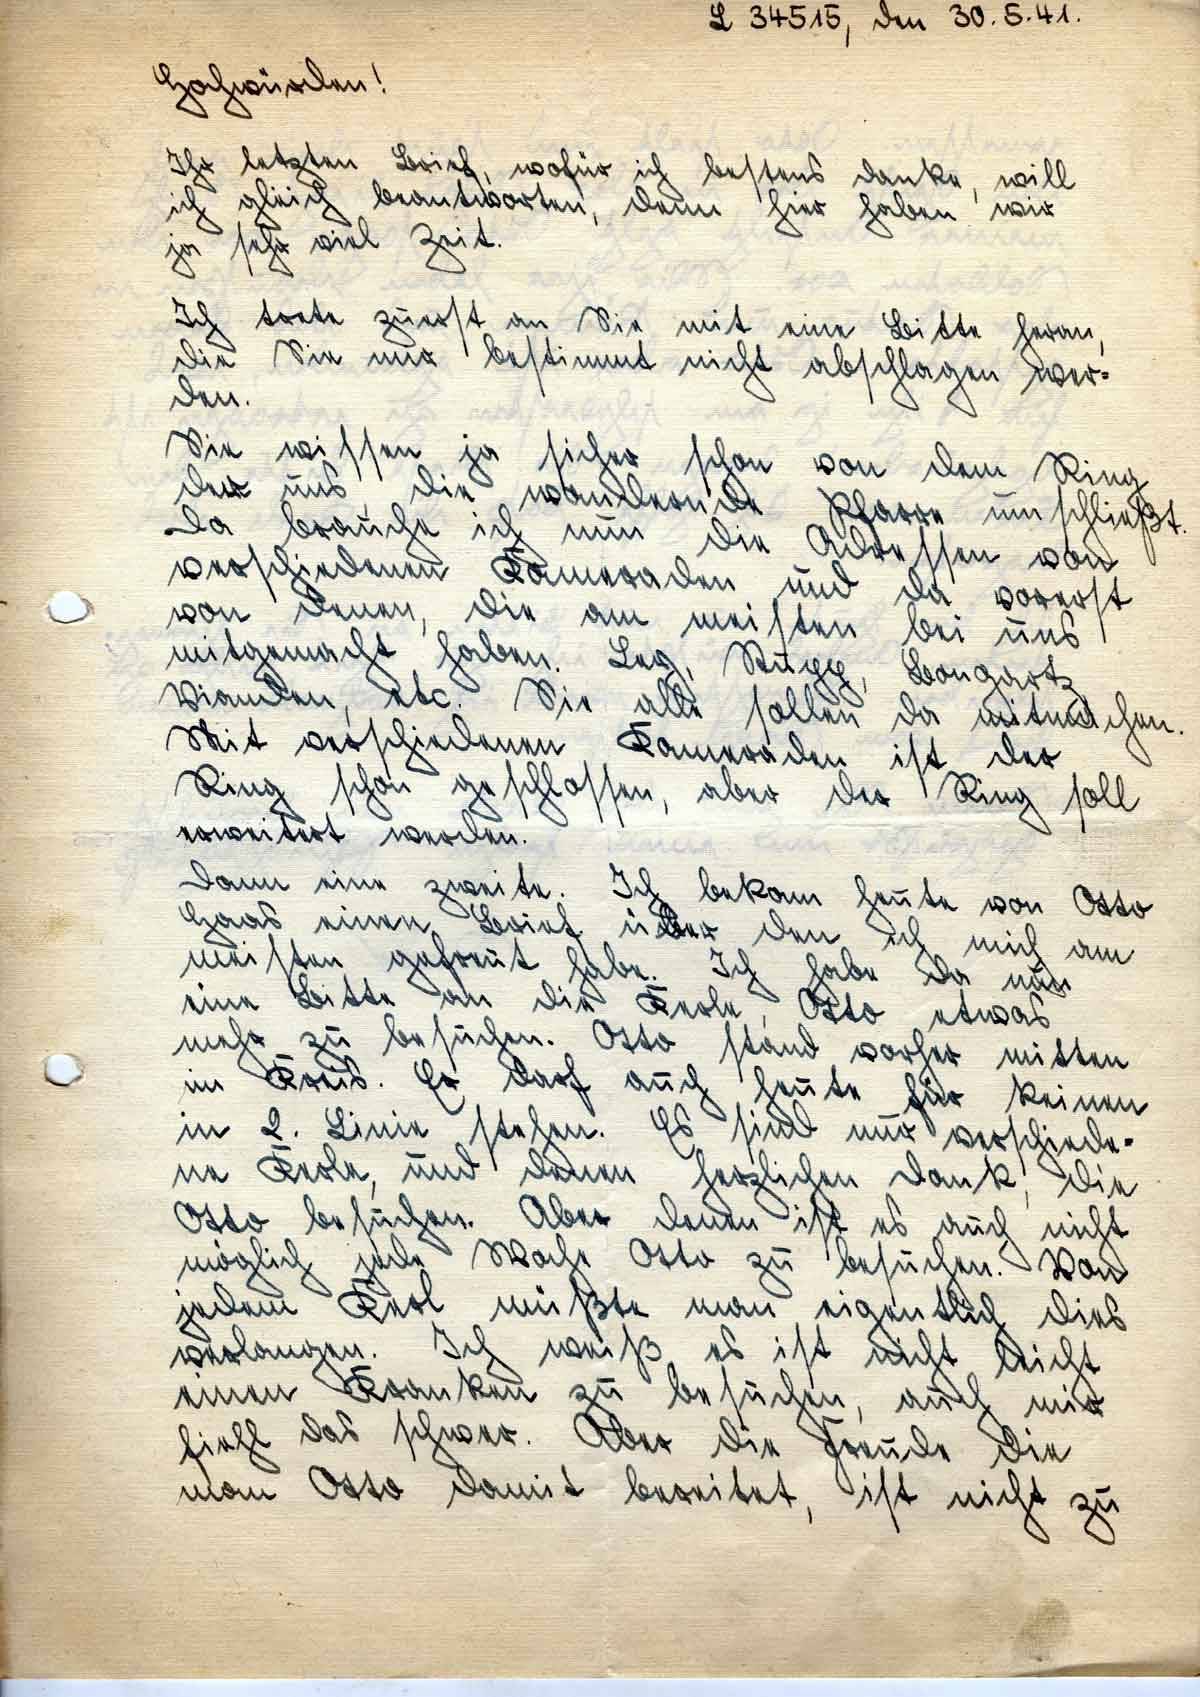 L 34515, den 30.5.41.
Hochwürden!
Ihr letzten Brief, wofür ich bestens danke, will
ich gleich beantworten, denn hier haben wir
ja sehr viel Zeit.
Ich trete zuerst an Sie mit eine Bitte heran,
die Sie mir bestimmt nicht abschlagen wer=
den.
Sie wissen ja sicher schon von dem Ring
der uns die wandernde Pfarre umschließt.
Da brauche ich nun die Adressen von
verschiedenen Kameraden und da vorerst
von denen, die am meisten bei uns
mitgemacht haben. Ley, Stupp, Bongartz
Vianden, etc. Sie alle sollen da mitmachen.
Mit verschiedenen Kameraden ist der
Ring schon geschlossen, aber der Ring soll
erweitert werden.
Dann eine zweite. Ich bekam heute von Otto
Haas einen Brief über den ich mich am
meisten gefreut habe. Ich habe da nun
eine Bitte an die Kerle, Otto etwas
mehr zu besuchen. Otto stand vorher mitten
im Kreis. Er darf auch heute für keinen
in 2. Linie stehen. Es sind nur verschiede=
ne Kerle, und denen herzlichen Dank, die
Otto besuchen. Aber denen ist es auch nicht
möglich jede Woche Otto zu besuchen. Von
jedem Kerl müßte man eigentlich dies
verlangen. Ich weiß es ist nicht leicht
einen Kranken zu besuchen, auch mir
fiehl das schwer. Aber die Freude die
man Otto damit bereitet, ist nicht zu